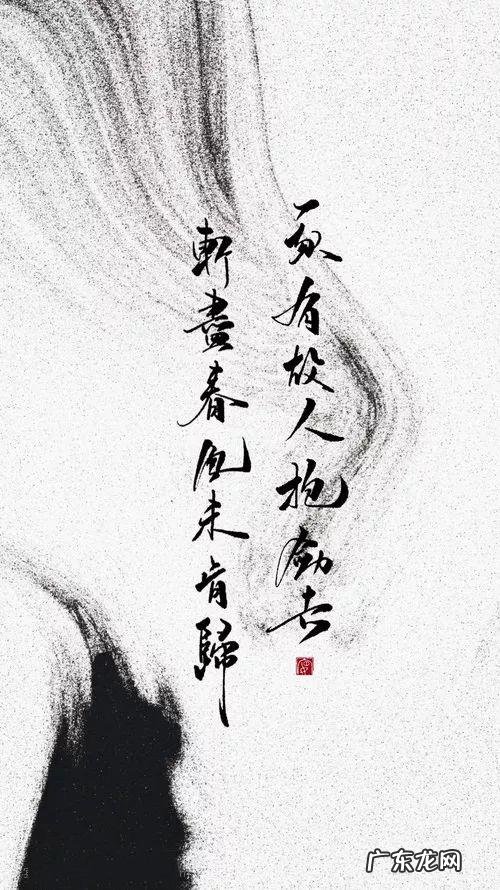 我有故人抱劍去
斬盡春風未肯歸
广东龙网